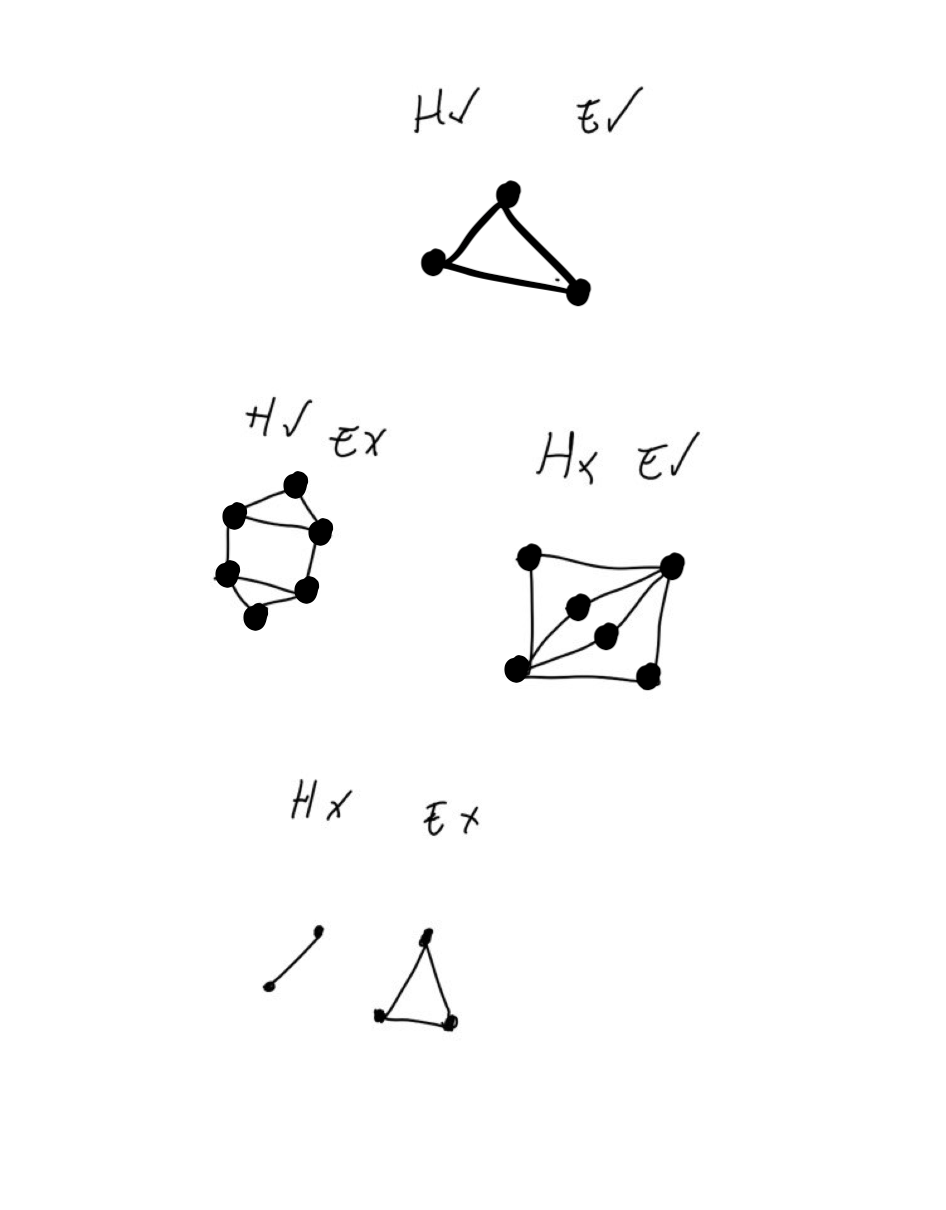 H✓ E✓
H✓ E✗
H✗ E✓
H✗ E✗